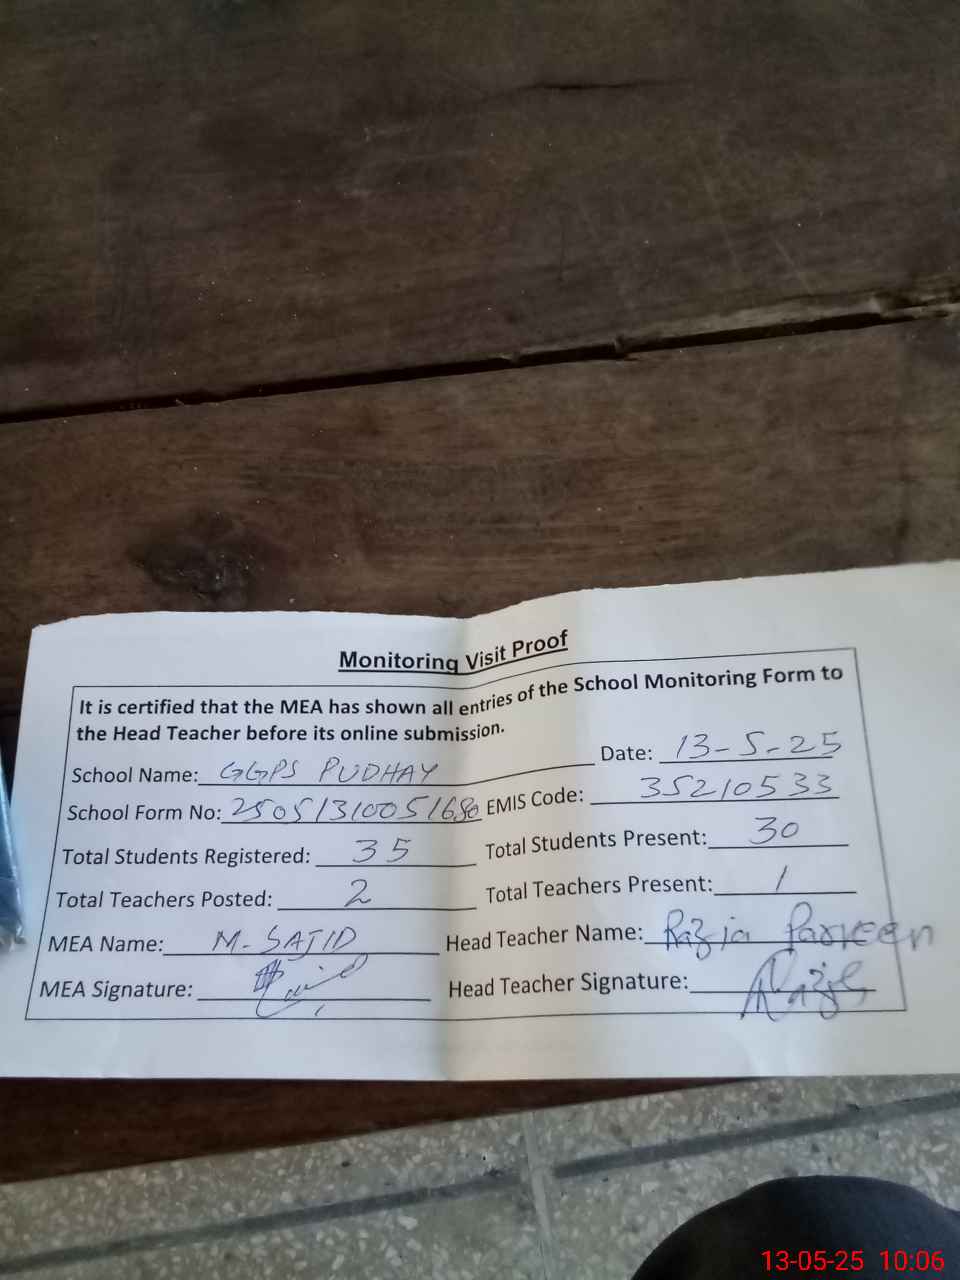 Monitoring Visit Proof
It is certified that the MEA has shown all entries of the School Monitoring Form to
the Head Teacher before its online submission.
Date: 13-5-25
School Name: GGPS PUDHAY
School Form No: 25051310051680 EMIS Code: 35210533
Total Students Registered: 35 Total Students Present: 30
Total Teachers Posted: 2 Total Teachers Present: 1
MEA Name: M-SAJID Head Teacher Name: Razia Parveen
MEA Signature: Head Teacher Signature:
13-05-25 10:06